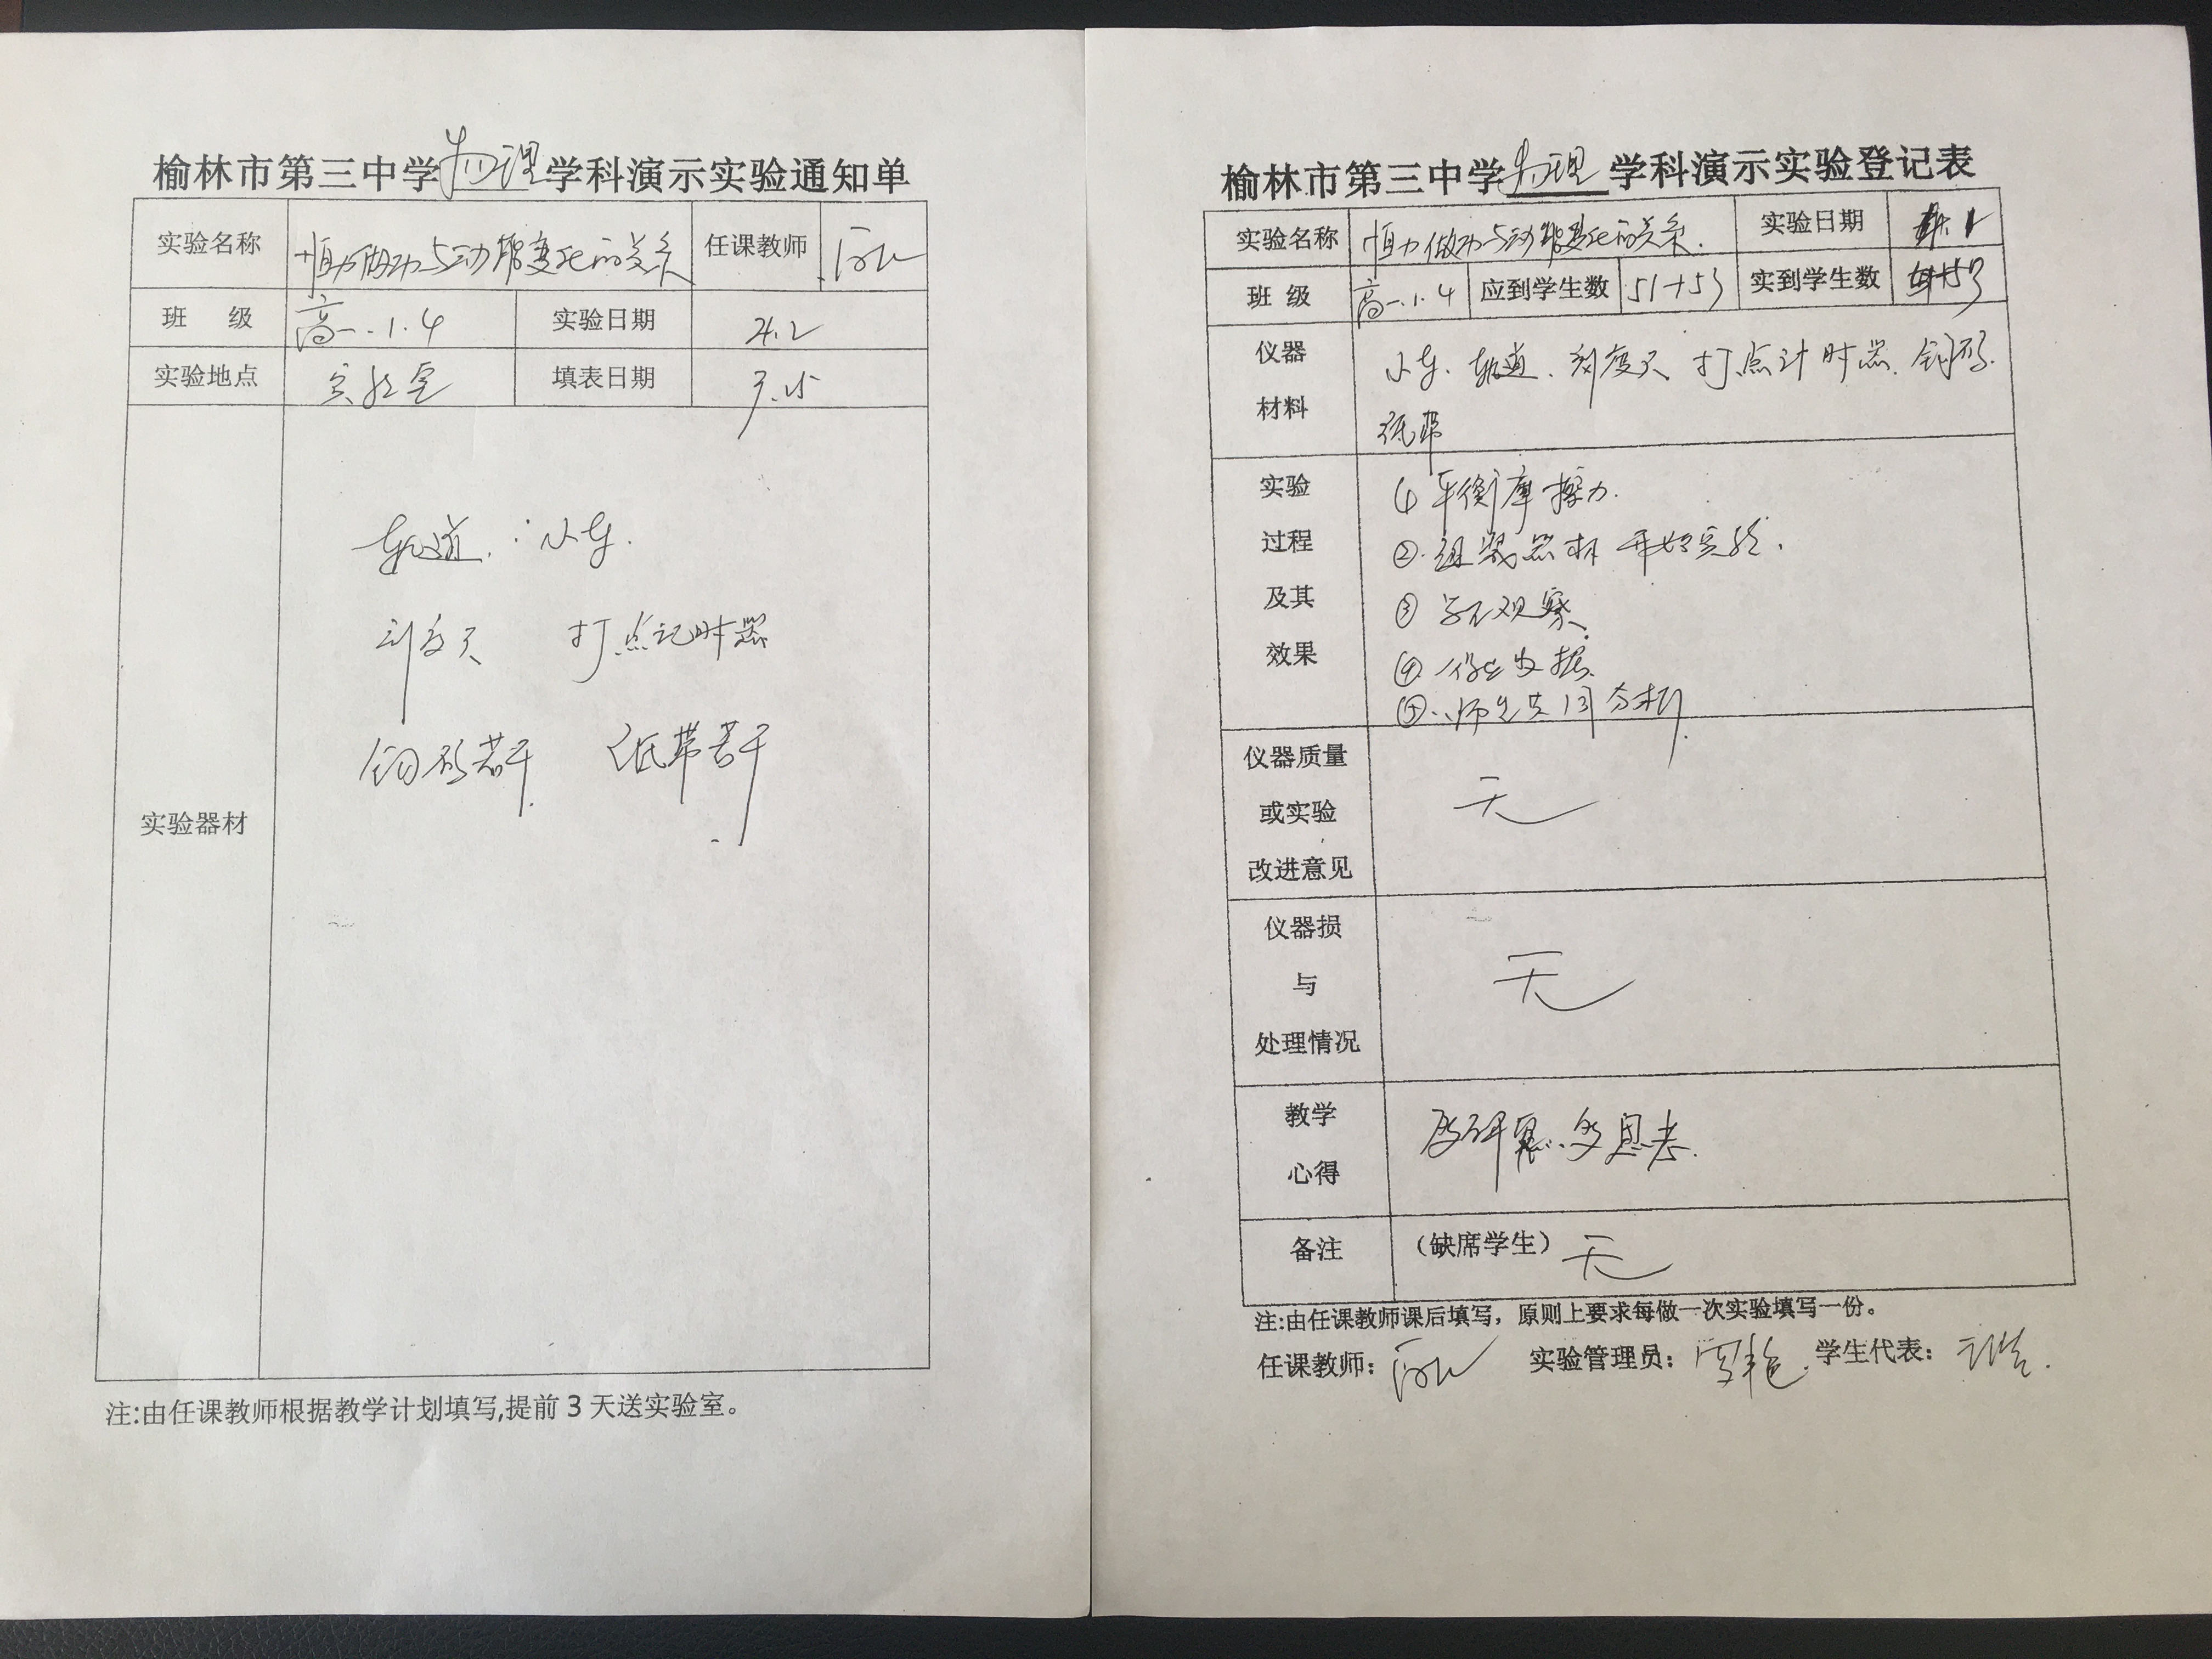 榆林市第三中学物理学科演示实验通知单
实验名称 恒力做功与动能变化的关系 任课教师
班 级 高一.1.4 实验日期 4.2
实验地点 实验室 填表日期 3.15
实验器材
轨道. 小车.
刻度尺 打点记时器
钩码若干 纸带若干
注:由任课教师根据教学计划填写,提前3天送实验室。
榆林市第三中学物理学科演示实验登记表
实验名称 恒力做功与动能变化的关系. 实验日期
班 级 高一.1.4 应到学生数 51+53 实到学生数
仪器材料 小车. 轨道. 刻度尺 打点计时器. 钩码.
纸带
实验过程及其效果
① 平衡摩擦力.
②. 组装器材 开始实验.
③ 学生观察.
④ 得出数据.
⑤. 师生共同分析.
仪器质量或实验改进意见 无
仪器损与处理情况 无
教学心得 多思考.
备注 （缺席学生） 无
注:由任课教师课后填写，原则上要求每做一次实验填写一份。
任课教师: 实验管理员: 学生代表: